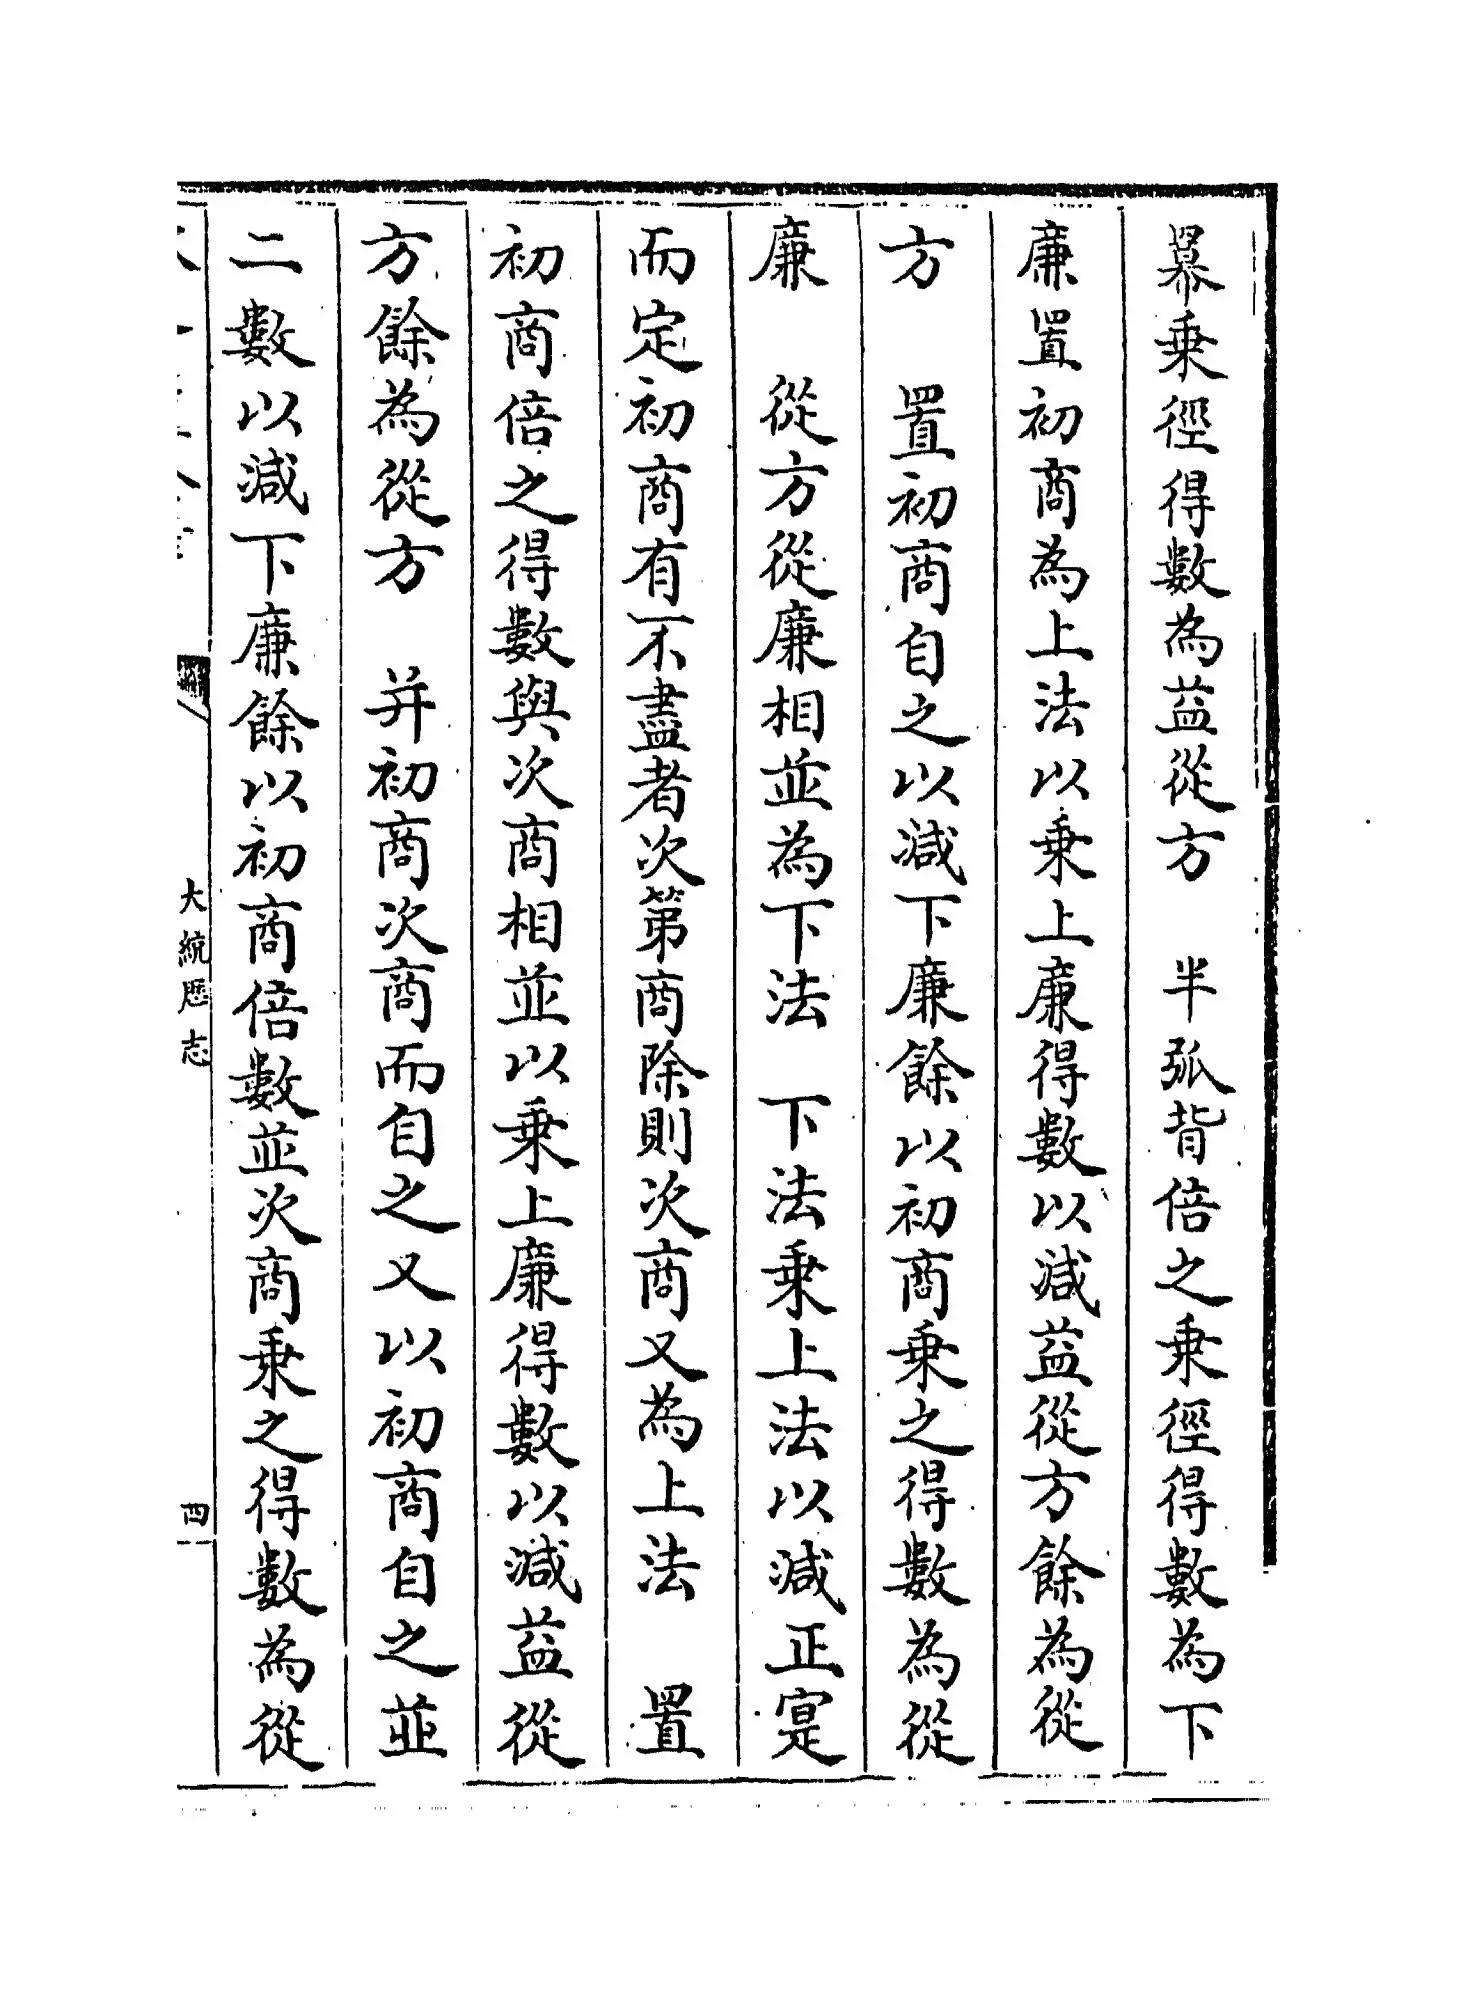 冪乗徑得數為益從方　半弧背倍之乗徑得數為下
廉置初商為上法以乗上廉得數以減益從方餘為從
方　置初商自之以減下廉餘以初商乗之得數為從
廉　從方從廉相並為下法　下法乗上法以減正寔
而定初商有不盡者次第商除則次商又為上法　置
初商倍之得數與次商相並以乗上廉得數以減益從
方餘為從方　并初商次商而自之又以初商自之並
二數以減下廉餘以初商倍數並次商乗之得數為從
大統厯志
四